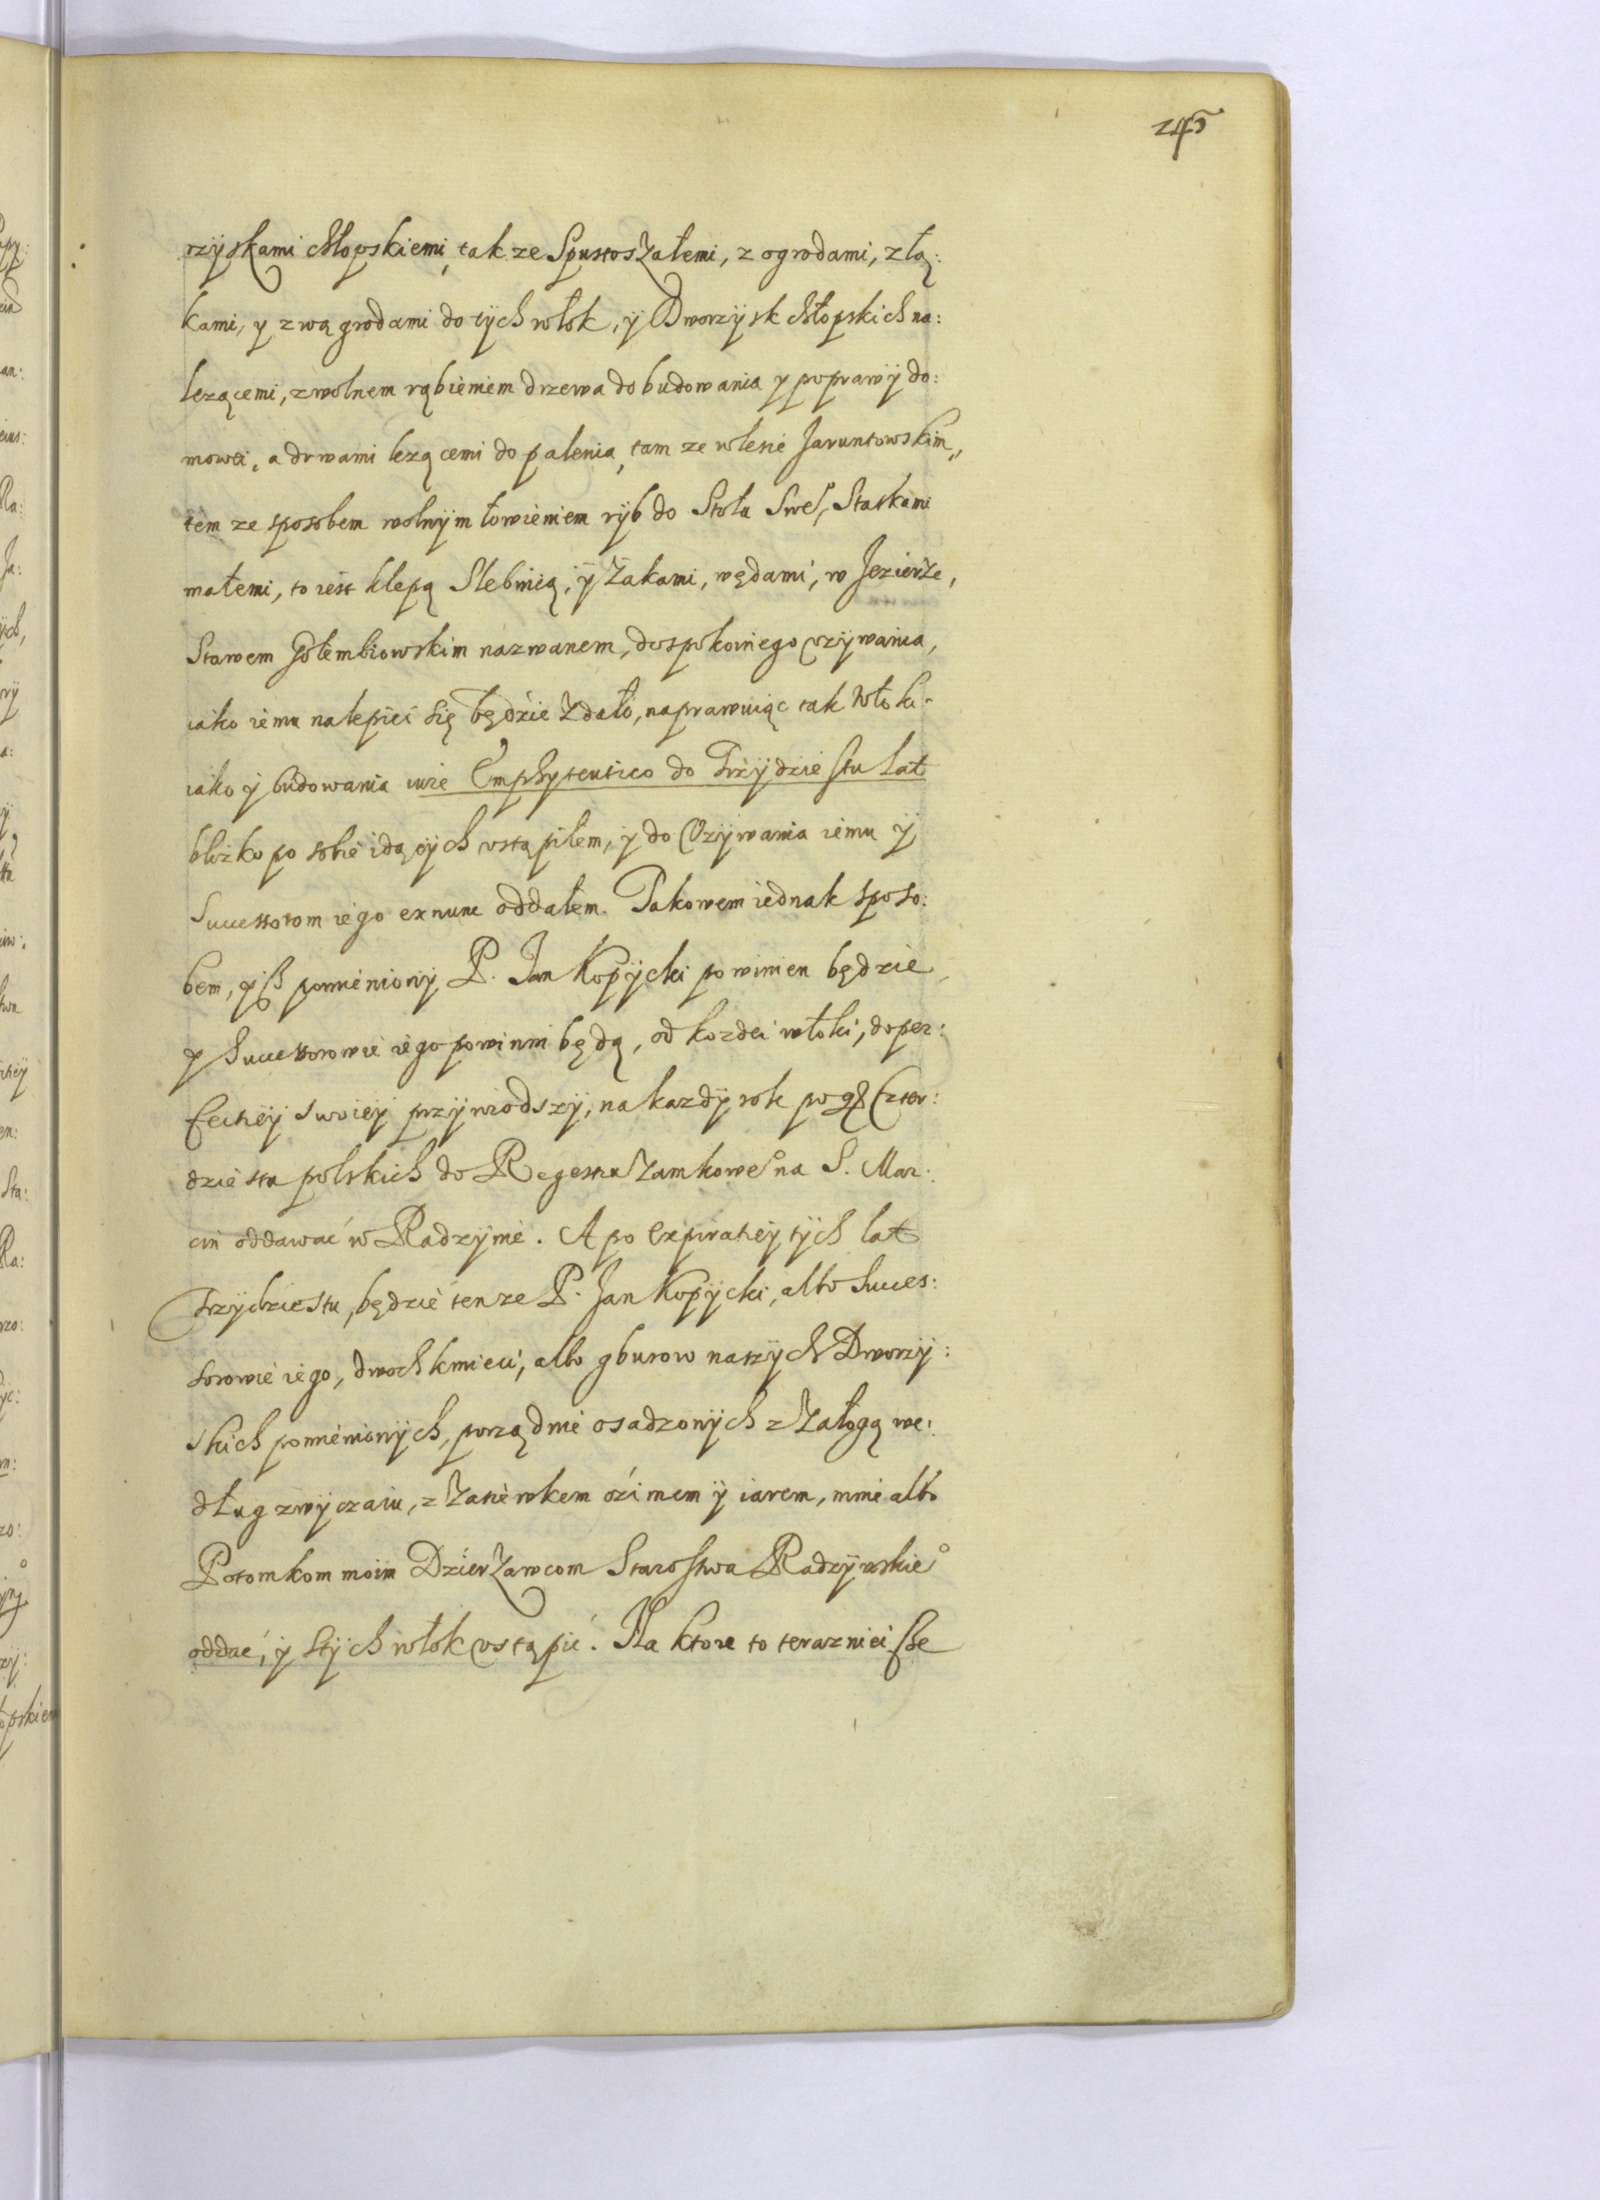 245
rzyskami chłopskiemi, tak ze Spustoszałemi, z ogrodami, z łą:
kami, y z wą grodami do tych włok, y Dworzysk chłopskich na:
lezącemi, z wolnem rąbieniem drzewa do budowania y poprawy do:
mowei, a drwami lezącemi do palenia, tam ze w lesie Jaruntowskim,
tem ze sposobem wolnym łowieniem ryb do Stołu Swe°, Statkami
małemi, to iest klepą Slebnią, y Zakami, wędami, w Jezierze,
Stawem Gołembiowskim nazwanem, do spokoinego vzywania,
iako iemu nalepiei się będzie zdało, naprawuiąc tak Włoki
iako y budowania iure Emphyteutico do Trzydziestu lat
blizko po sobie idących vstąpiłem, y do Vzywania iemu y
Successorom iego ex nunc oddałem. Takowem iednak sposo:
bem, yß pomieniony P. Jan Kopycki powinien będzie,
y Successorowie iego powinni będą, od kozdei włoki, do per:
fectiey swoiey przywiodszy, na kazdy rok po Czter:
dziesta polskich do Regestru Zamkowe° na S. Mar:
cin oddawać w Radzynie. A po Expiratiey tych lat
Trzydziestu, będzie tenze P. Jan Kopycki, albo Succes:
sorowie iego, dwoch kmieci, albo gburow naszych Dworzy:
skich pomienionych, porządnie osadzonych z Załogą we:
dług zwyczaiu, z Zasiewkem ozimem y iarem, mnie albo
Potomkom moim Dzierzawcom Starostwa Radzynskie°
oddać, y s tych włok vstąpić. Na ktore to teraznieisße